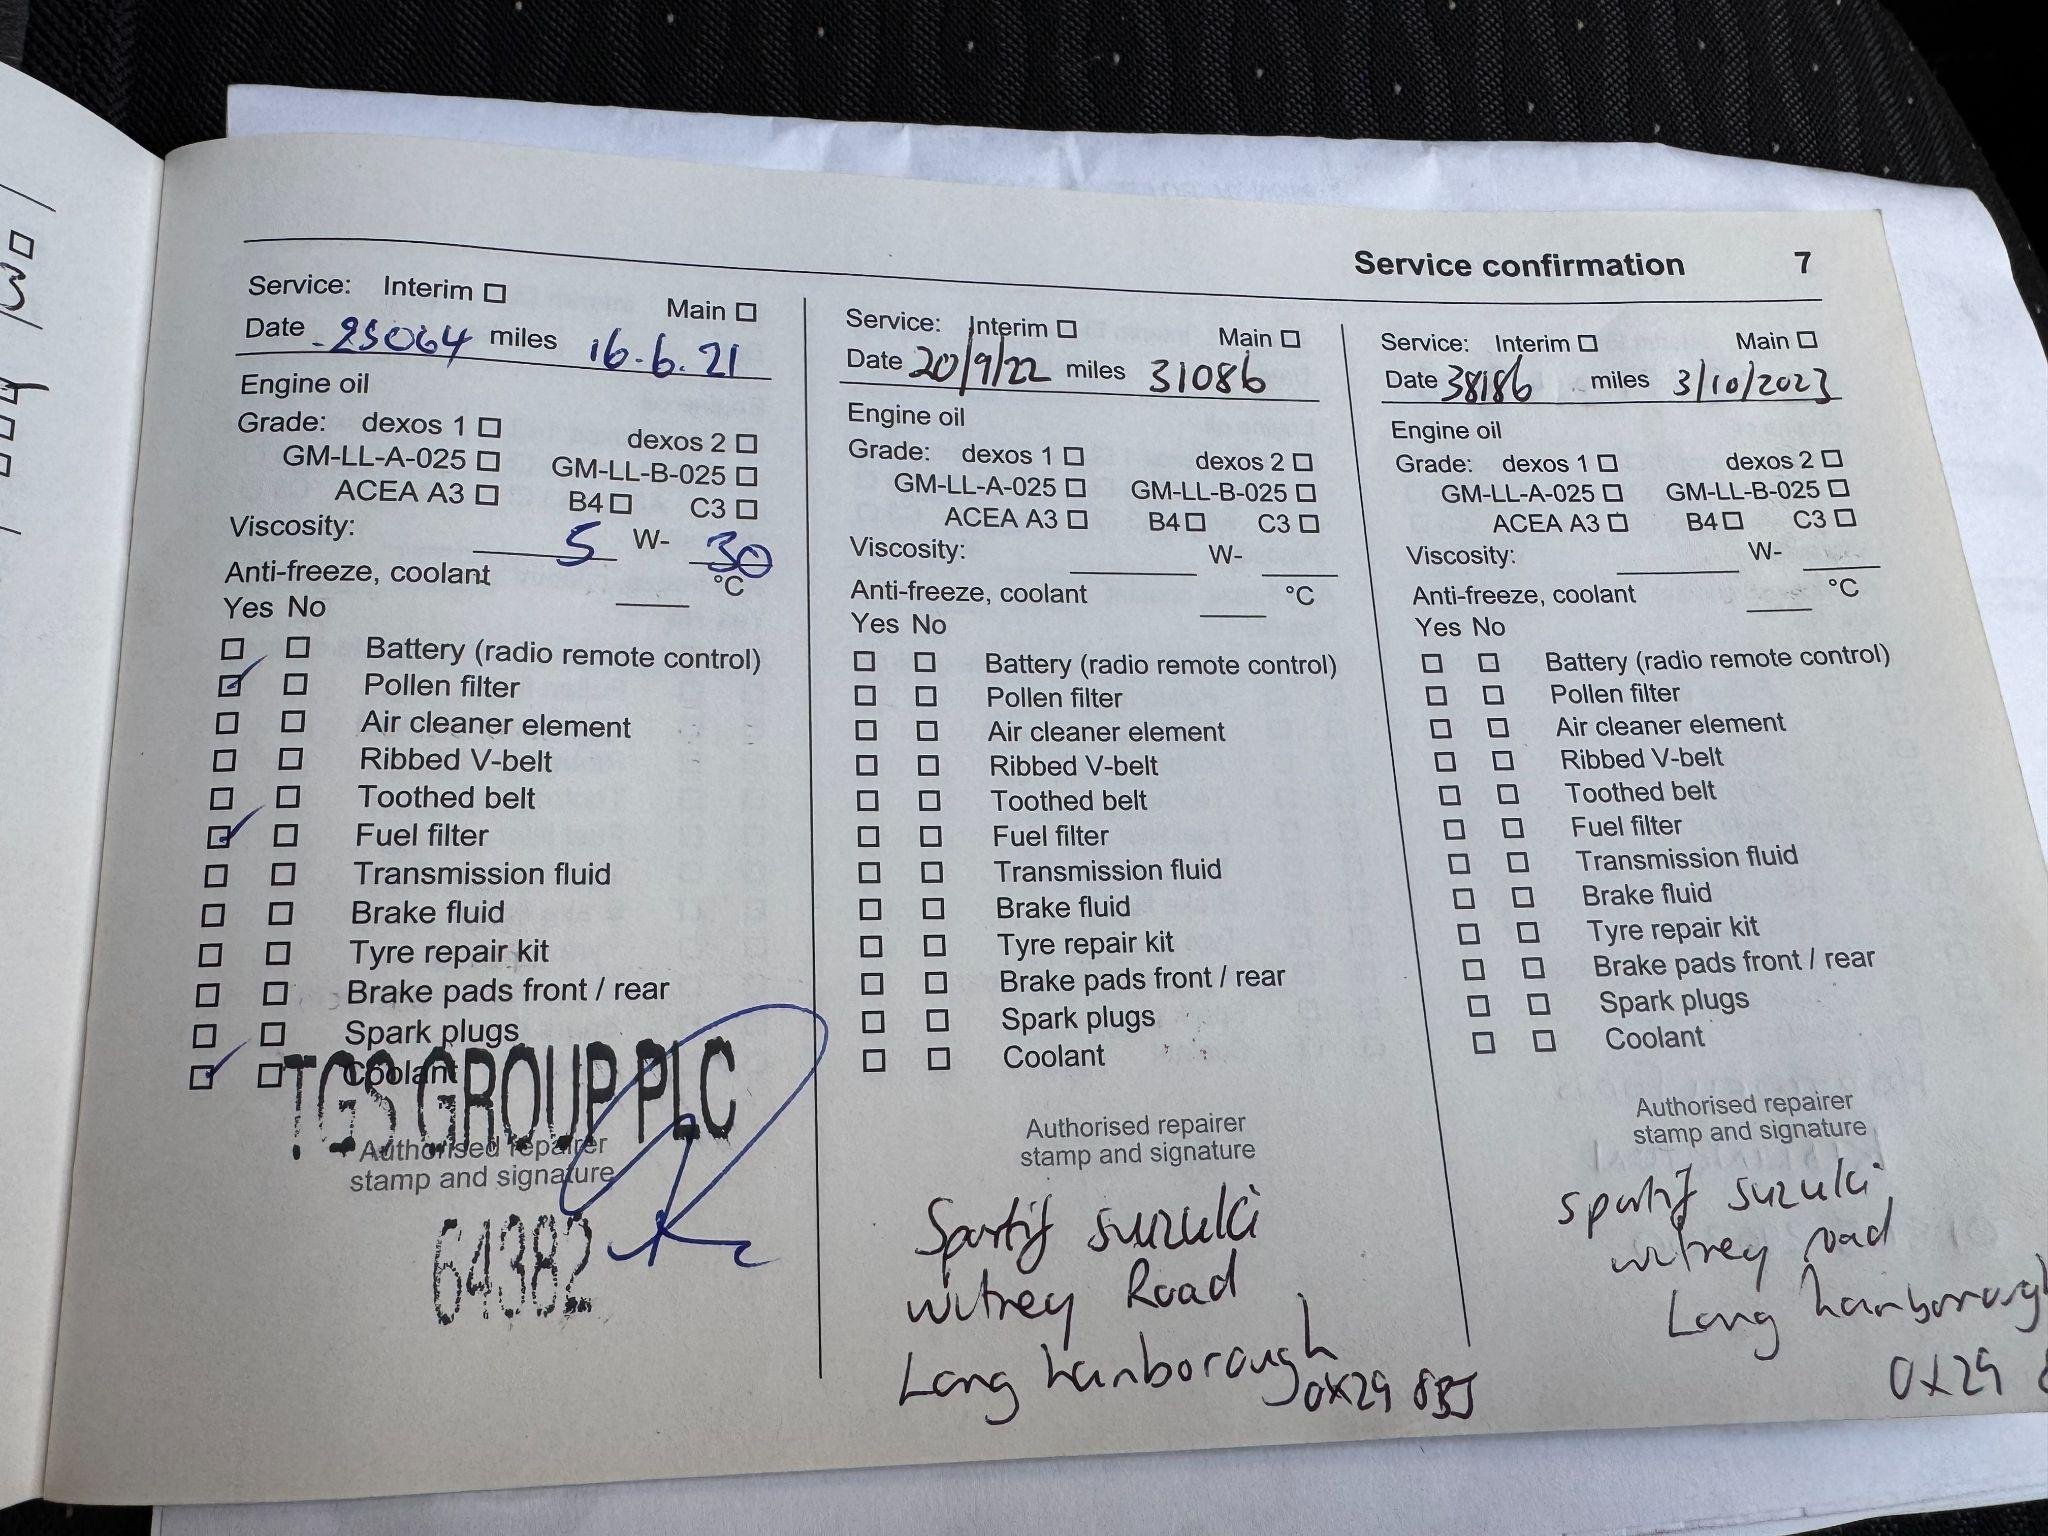 Service confirmation 7
Service: Interim ☐ Main ☐
Date 25064 miles 16.6.21
Engine oil
Grade: dexos 1 ☐ dexos 2 ☐
GM-LL-A-025 ☐ GM-LL-B-025 ☐
ACEA A3 ☐ B4 ☐ C3 ☐
Viscosity: 5 W- 30
Anti-freeze, coolant °C
Yes No
☐ ☐ Battery (radio remote control)
☑ ☐ Pollen filter
☐ ☐ Air cleaner element
☐ ☐ Ribbed V-belt
☐ ☐ Toothed belt
☑ ☐ Fuel filter
☐ ☐ Transmission fluid
☐ ☐ Brake fluid
☐ ☐ Tyre repair kit
☐ ☐ Brake pads front / rear
☐ ☐ Spark plugs
☑ ☐ Coolant
TGS GROUP PLC
Authorised repairer
stamp and signature
64382
Service: Interim ☐ Main ☐
Date 20/9/22 miles 31086
Engine oil
Grade: dexos 1 ☐ dexos 2 ☐
GM-LL-A-025 ☐ GM-LL-B-025 ☐
ACEA A3 ☐ B4 ☐ C3 ☐
Viscosity: W-
Anti-freeze, coolant °C
Yes No
☐ ☐ Battery (radio remote control)
☐ ☐ Pollen filter
☐ ☐ Air cleaner element
☐ ☐ Ribbed V-belt
☐ ☐ Toothed belt
☐ ☐ Fuel filter
☐ ☐ Transmission fluid
☐ ☐ Brake fluid
☐ ☐ Tyre repair kit
☐ ☐ Brake pads front / rear
☐ ☐ Spark plugs
☐ ☐ Coolant
Authorised repairer
stamp and signature
Sportif suzuki
witney Road
Long hanborough
OX29 8BJ
Service: Interim ☐ Main ☐
Date 38186 miles 3/10/2023
Engine oil
Grade: dexos 1 ☐ dexos 2 ☐
GM-LL-A-025 ☐ GM-LL-B-025 ☐
ACEA A3 ☐ B4 ☐ C3 ☐
Viscosity: W-
Anti-freeze, coolant °C
Yes No
☐ ☐ Battery (radio remote control)
☐ ☐ Pollen filter
☐ ☐ Air cleaner element
☐ ☐ Ribbed V-belt
☐ ☐ Toothed belt
☐ ☐ Fuel filter
☐ ☐ Transmission fluid
☐ ☐ Brake fluid
☐ ☐ Tyre repair kit
☐ ☐ Brake pads front / rear
☐ ☐ Spark plugs
☐ ☐ Coolant
Authorised repairer
stamp and signature
sportif suzuki
witney road
Long hanborough
OX29